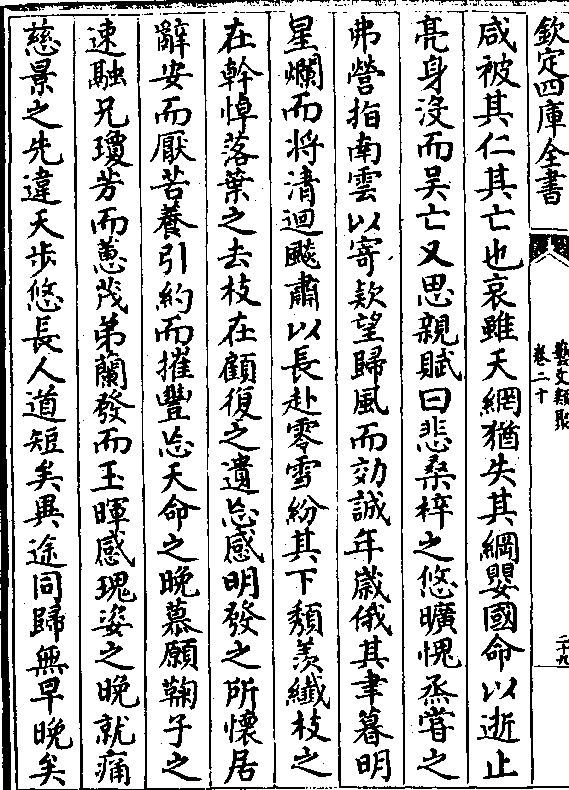 欽定四庫全書
藝文類聚
卷二十
二十九
咸被其仁其亡也哀雖天網猶失其綱嬰國命以逝止
亮身沒而吳亡又思親賦曰悲桑梓之悠曠愧烝嘗之
弗營指南雲以寄欵望歸風而効誠年歲俄其聿暮明
星爛而将清迴飈肅以長赴零雪紛其下頽羡纎枝之
在幹悼落葉之去枝在顧復之遺志感明發之所懷居
辭安而厭苦養引約而摧豐忘天命之晚慕願鞠子之
速融兄瓊芳而蕙茂弟蘭發而玉暉感瑰姿之晚就痛
慈景之先違天步悠長人道短矣異途同歸無早晚矣